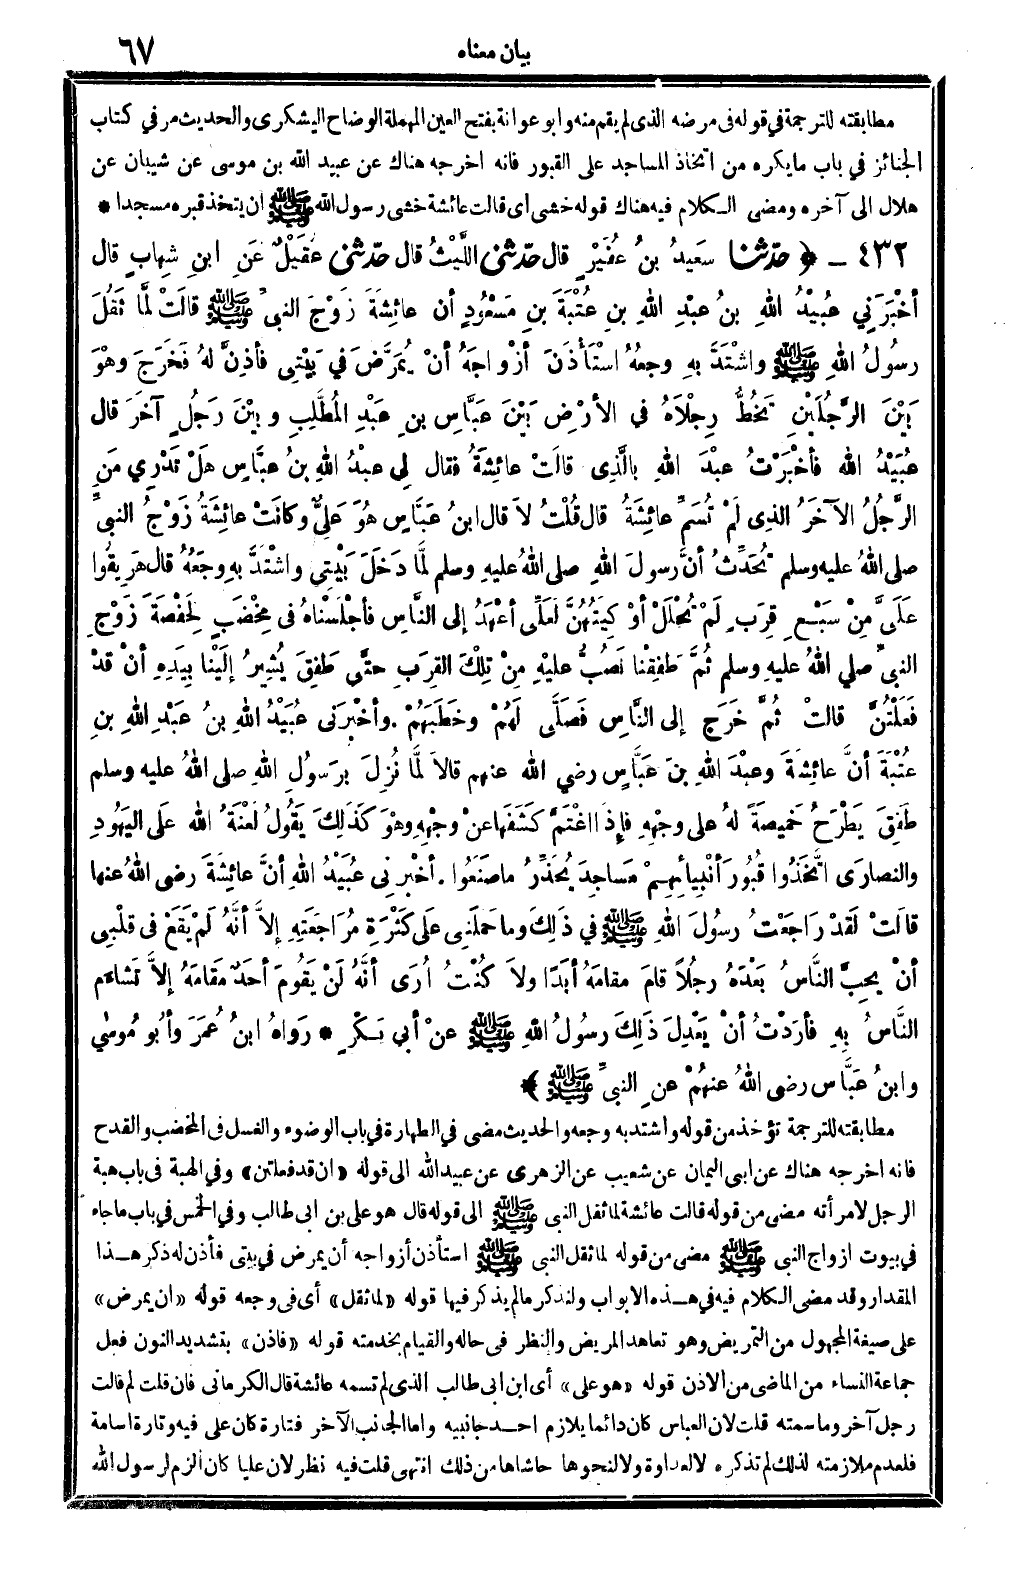 بيان معناه
٦٧
مطابقته للترجمة في قوله فى مرضه الذى لم يقم منه وابو عوانة بفتح العين المهملة الوضاح اليشكرى والحديث مر في كتاب
الجنائز في باب مايكره من اتخاذ المساجد على القبور فانه اخرجه هناك عن عبيد الله بن موسى عن شيبان عن
هلال الى آخره ومضى الكلام فيه هناك قوله خشى اى قالت عائشة خشى رسول الله ﷺ ان يتخذ قبره مسجدا *
٤٣٢ - ﴿ حدّثنا سَعِيدُ بنُ عُفَيْرٍ قال حدّثنى اللَّيْثُ قال حدّثنى عُقَيْلٌ عَنِ ابنِ شِهابٍ قال
أخْبَرَنِي عُبَيْدُ اللهِ بنُ عبْدِ اللهِ بنِ عُتْبَةَ بنِ مَسْعُودٍ أن عائِشَةَ زَوْجَ النبىِّ ﷺ قالَتْ لمَّا ثَقُلَ
رسولُ اللهِ ﷺ واشْتَدَّ بهِ وجعُهُ اسْتَأْذَنَ أزْواجَهُ أنْ يُمَرَّضَ في بَيْتِى فأذِنَّ لهُ فَخَرَجَ وهْوَ
بَيْنَ الرَّجُلَيْنِ تَخُطُّ رِجْلاَهُ في الأرْضِ بَيْنَ عَبَّاسِ بنِ عبْدِ المُطَّلِبِ وبيْنَ رَجُلٍ آخرَ قال
عُبَيْدُ الله فأخْبَرْتُ عبْدَ اللهِ بالَّذِى قالَتْ عائِشَةُ فقال لِى عبْدُ اللهِ بنُ عبَّاسٍ هلْ تَدْرِي مَنِ
الرَّجُلُ الآخَرُ الذِى لَمْ تُسَمِّ عائِشَةُ قال قُلْتُ لاَ قال ابنُ عبَّاسٍ هُوَ عَلِيٌّ وكانَتْ عائِشَةُ زَوْجُ النبىِّ
صلى اللهُ عليه وسلم تُحَدِّثُ أنَّ رسولَ اللهِ صلى اللهُ عليهِ وسلم لمَّا دَخَلَ بَيْتِي واشْتَدَّ بهِ وجَعُهُ قال هَرِيقُوا
عَلَىَّ مِنْ سَبْعِ قِرَبٍ لَمْ تُحْلَلْ أوْ كِيَتُهُنَّ لَعَلِّى أعْهَدُ إلى النَّاسِ فأجْلَسْناهُ فى مِخْضَبٍ لِحَفْصَةَ زَوْجِ
النبىِّ صلي اللهُ عليهِ وسلم ثُمَّ طَفِقْنا نَصُبُّ عليْهِ مِنْ تِلْكَ القِرَبِ حتَّى طَفِقَ يُشِيرُ إلَيْنا بِيَدِهِ أنْ قدْ
فَعَلْتُنَّ قالتْ ثُمَّ خَرَجَ إلى النَّاسِ فَصَلَّى لَهُمْ وخَطَبَهُمْ . وأخْبرَنى عُبَيْدُ اللهِ بنُ عبْدِ اللهِ بنِ
عُتْبَةَ أنَّ عائِشَةَ وعبْدَ اللهِ بنَ عبَّاسٍ رضي الله عنهم قالاَ لمَّا نُزِلَ برَسُولِ اللهِ صلى الله عليه وسلم
طَفِقَ يَطْرَحُ خَمِيصَةً لهُ على وجْهِهِ فإذَا اغْتَمَّ كَشَفَها عنْ وجْهِهِ وهْوَ كَذَلِكَ يَقُولُ لَعْنَةُ الله عَلَى اليَهُودِ
والنصارَى اتَّخَذُوا قُبُورَ أنْبِيائِهِمْ مَساجِدَ يُحَذِّرُ ماصَنَعُوا . أخْبرَنِى عُبَيْدُ اللهِ أنَّ عائِشَةَ رضى اللهُ عنها
قالَتْ لقدْ رَاجَعْتُ رسُولَ اللهِ ﷺ في ذَلِكَ وما حملَنِى عَلَى كَثْرَةِ مُرَاجَعَتِهِ إلاَّ أنَّهُ لَمْ يَقَعْ فى قلْبِى
أنْ يحِبَّ النَّاسُ بَعْدَهُ رجُلاً قامَ مقامَهُ أبَدًا ولاَ كُنْتُ أُرَى أنَّهُ لَنْ يَقُومَ أحَدٌ مَقامَهُ إلاَّ تَشاءَمَ
النَّاسُ بهِ فأرَدْتُ أنْ يَعْدِلَ ذَلِكَ رسولُ اللهِ ﷺ عنْ أبي بَكْرٍ * رَواهُ ابنُ عُمَرَ وأبُو مُوسَى
وابنُ عَبَّاسٍ رضى اللهُ عنهُمْ عنِ النبىِّ ﷺ ﴾
مطابقته للترجمة تؤخذ من قوله واشتد به وجعه والحديث مضى في الطهارة في باب الوضوء والغسل فى المخضب والقدح
فانه اخرجه هناك عن ابى اليمان عن شعيب عن الزهرى عن عبيد الله الى قوله «ان قد فعلتن» وفي الهبة فى باب هبة
الرجل لامرأته مضى من قوله قالت عائشة لما ثقل النبى ﷺ الى قوله قال هو على بن ابى طالب وفي الخمس في باب ماجاء
في بيوت ازواج النبى ﷺ مضى من قوله لما ثقل النبى ﷺ استأذن أزواجه أن يمرض في بيتى فأذن له ذكر هذا
المقدار وقد مضى الكلام فيه في هذه الابواب ولنذكر مالم يذكر فيها قوله «لما ثقل» أى فى وجعه قوله «ان يمرض»
على صيغة المجهول من التمريض وهو تعاهد المريض والنظر فى حاله والقيام بخدمته قوله «فاذن» بتشديد النون فعل
جماعة النساء من الماضى من الاذن قوله «هو على» أى ابن ابى طالب الذى لم تسمه عائشة قال الكرمانى فان قلت لم قالت
رجل آخر وما سمته قلت لان العباس كان دائما يلازم احد جانبيه واما الجانب الآخر فتارة كان على فيه وتارة اسامة
فلعدم ملازمته لذلك لم تذكره لا لعداوة ولا لنحوها حاشاها من ذلك انتهى قلت فيه نظر لان عليا كان ألزم لرسول الله